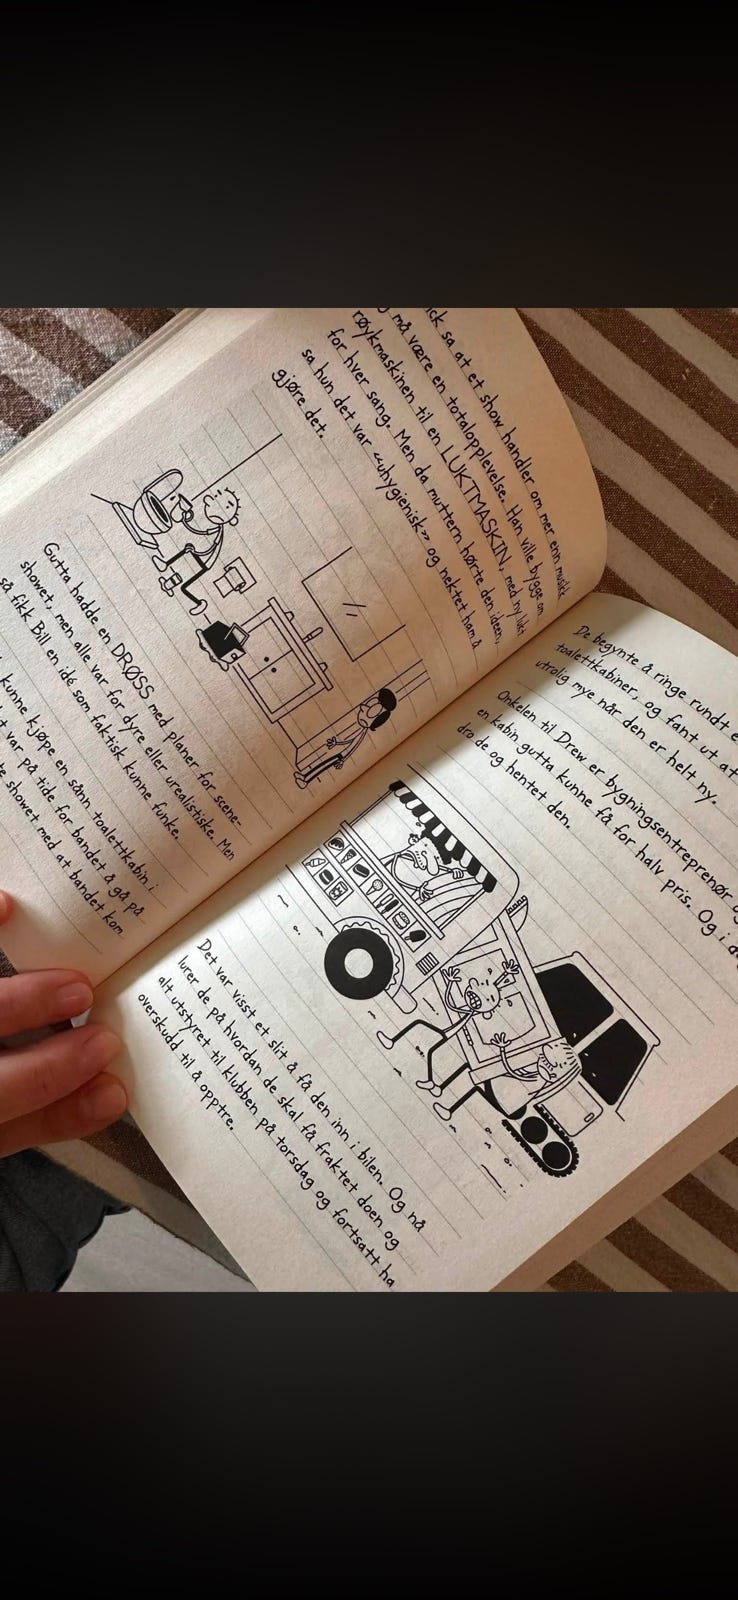 ck sa at et show handler om mer enn musikk
må være en totalopplevelse. Han ville bygge om
røykmaskinen til en LUKTMASKIN, med ny lukt
for hver sang. Men da muttern hørte den ideen,
sa hun det var «uhygienisk» og nektet ham å
gjøre det.
Gutta hadde en DRØSS med planer for scene-
showet, men alle var for dyre eller urealistiske. Men
så fikk Bill en idé som faktisk kunne funke.
kunne kjøpe en sånn toalettkabin i
var på tide for bandet å gå på
showet med at bandet kom
De begynte å ringe rundt e
toalettkabiner, og fant ut at
utrolig mye når den er helt ny.
Onkelen til Drew er bygningsentreprenør o
en kabin gutta kunne få for halv pris. Og i d
dro de og hentet den.
Det var visst et slit å få den inn i bilen. Og nå
lurer de på hvordan de skal få fraktet doen og
alt utstyret til klubben på torsdag og fortsatt ha
overskudd til å opptre.